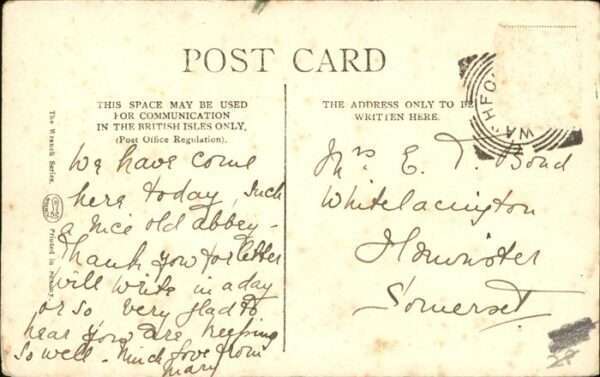 POST CARD
THIS SPACE MAY BE USED
FOR COMMUNICATION
IN THE BRITISH ISLES ONLY.
(Post Office Regulation).
We have come
here today, such
a nice old abbey -
Thank you for letter
will write in a day
or so. very glad to
hear you are keeping
so well. Much love from
Mary
The Wrench Series.
Printed in
THE ADDRESS ONLY TO BE
WRITTEN HERE.
Mrs E. T. Bond
Whitelackington
Ilminster
Somerset
WA HFO